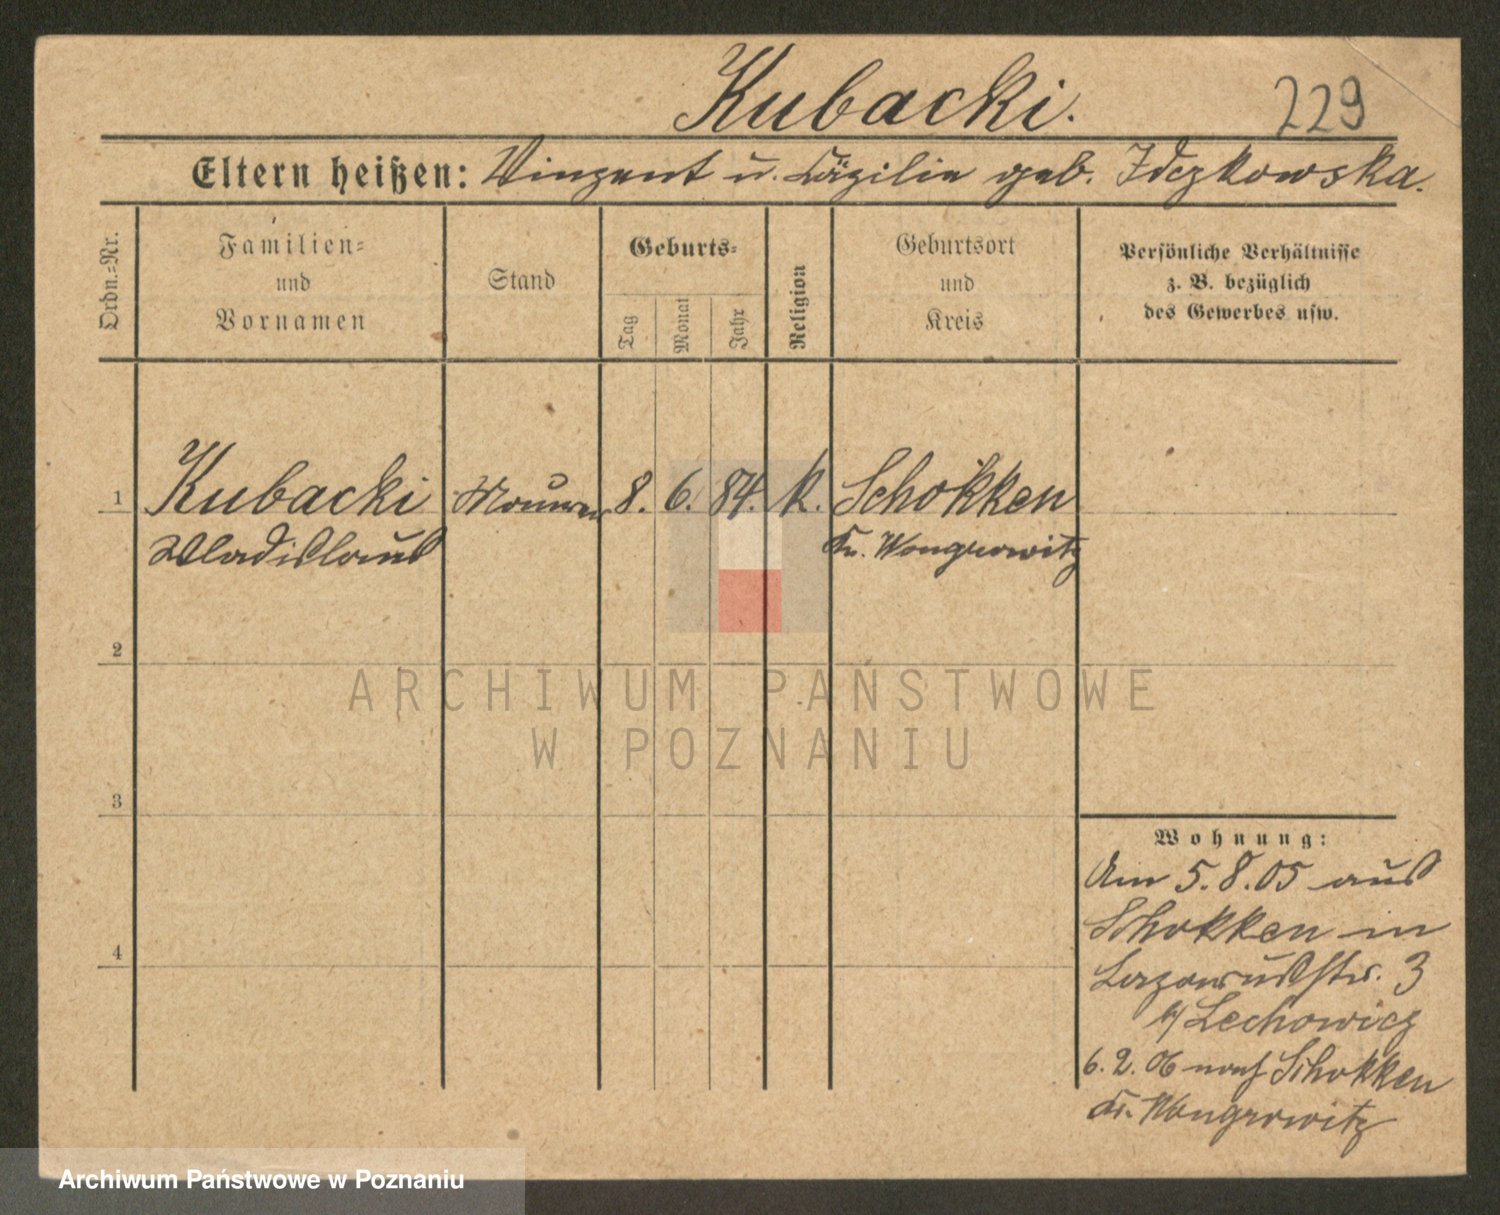 Kubacki.
229
Eltern heißen: Vinzent u. Cäzilie geb. Idczkowska.
Ordn.=Nr.
Familien=
und
Vornamen
Stand
Geburts=
Tag
Monat
Jahr
Religion
Geburtsort
und
Kreis
Persönliche Verhältnisse
z. B. bezüglich
des Gewerbes usw.
1 Kubacki Maurer 8. 6. 84. k. Schokken
Wladislaus Kr. Wongrowitz
2
3
4
Wohnung:
Am 5.8.05 aus
Schokken in
Lazarusstr. 3
b/ Lechowicz
6.2.06 nach Schokken
Kr. Wongrowitz
ARCHIWUM PAŃSTWOWE
W POZNANIU
Archiwum Państwowe w Poznaniu